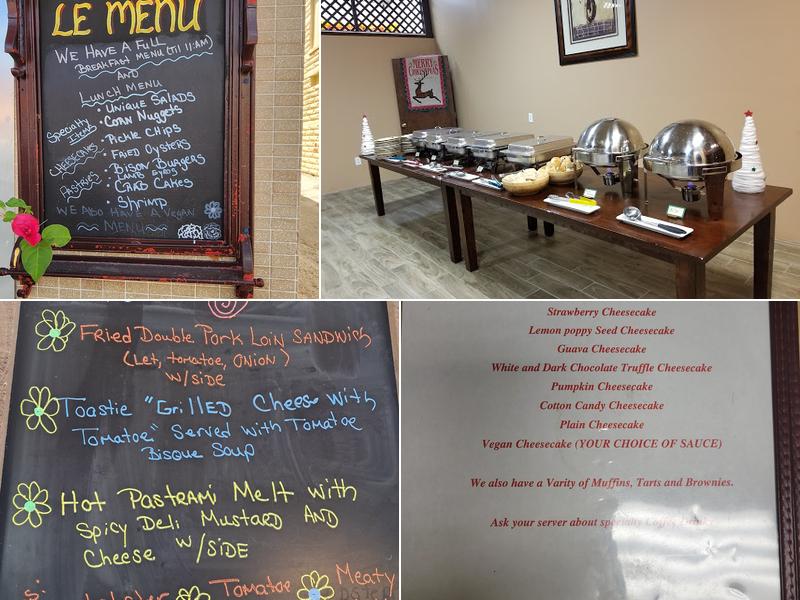 LE MENU
WE HAVE A FULL
BREAKFAST MENU (TIL 11:AM)
AND
LUNCH MENU
• UNIQUE SALADS
• CORN NUGGETS
• PICKLE CHIPS
• FRIED OYSTERS
• BISON BURGERS
• CRAB CAKES
• SHRIMP
Specialty
Items
CHEESECAKES
PASTRIES
WE ALSO HAVE A VEGAN
MENU
MERRY
CHRISTMAS
FRIED Double PORK LOIN SANDWICH
(Let, tomatoe, ONION)
W/SIDE
Toastie "GRILLED Cheese With
Tomatoe" Served with Tomatoe
Bisque Soup
Hot PASTRAMI Melt with
Spicy Deli MUSTARD AND
Cheese W/SIDE
Tomatoe
Meaty
Strawberry Cheesecake
Lemon poppy Seed Cheesecake
Guava Cheesecake
White and Dark Chocolate Truffle Cheesecake
Pumpkin Cheesecake
Cotton Candy Cheesecake
Plain Cheesecake
Vegan Cheesecake (YOUR CHOICE OF SAUCE)
We also have a Varity of Muffins, Tarts and Brownies.
Ask your server about specialty Coffee Drinks